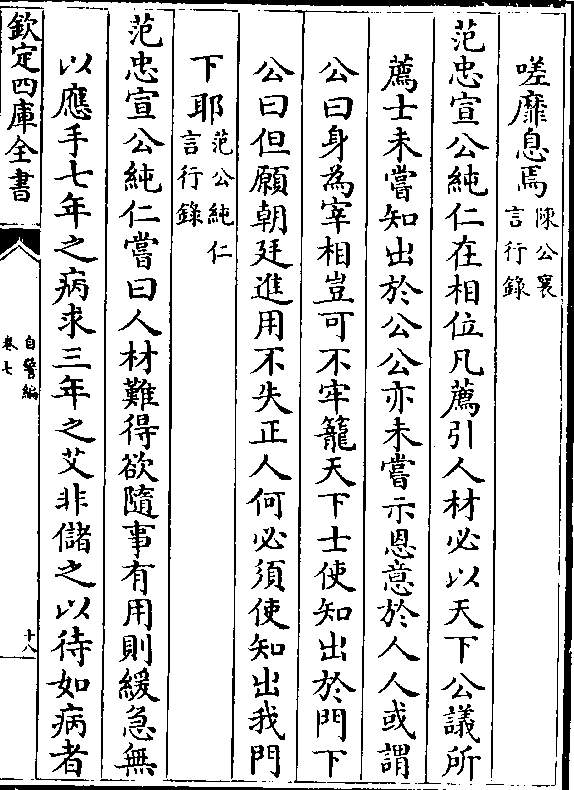 嗟靡息焉陳公襄
言行錄
范忠宣公純仁在相位凡薦引人材必以天下公議所
薦士未嘗知出於公公亦未嘗示恩意於人人或謂
公曰身為宰相豈可不牢籠天下士使知出於門下
公曰但願朝廷進用不失正人何必須使知出我門
下耶范公純仁
言行錄
范忠宣公純仁嘗曰人材難得欲隨事有用則緩急無
以應手七年之病求三年之艾非儲之以待如病者
欽定四庫全書
自警編
卷七
十八